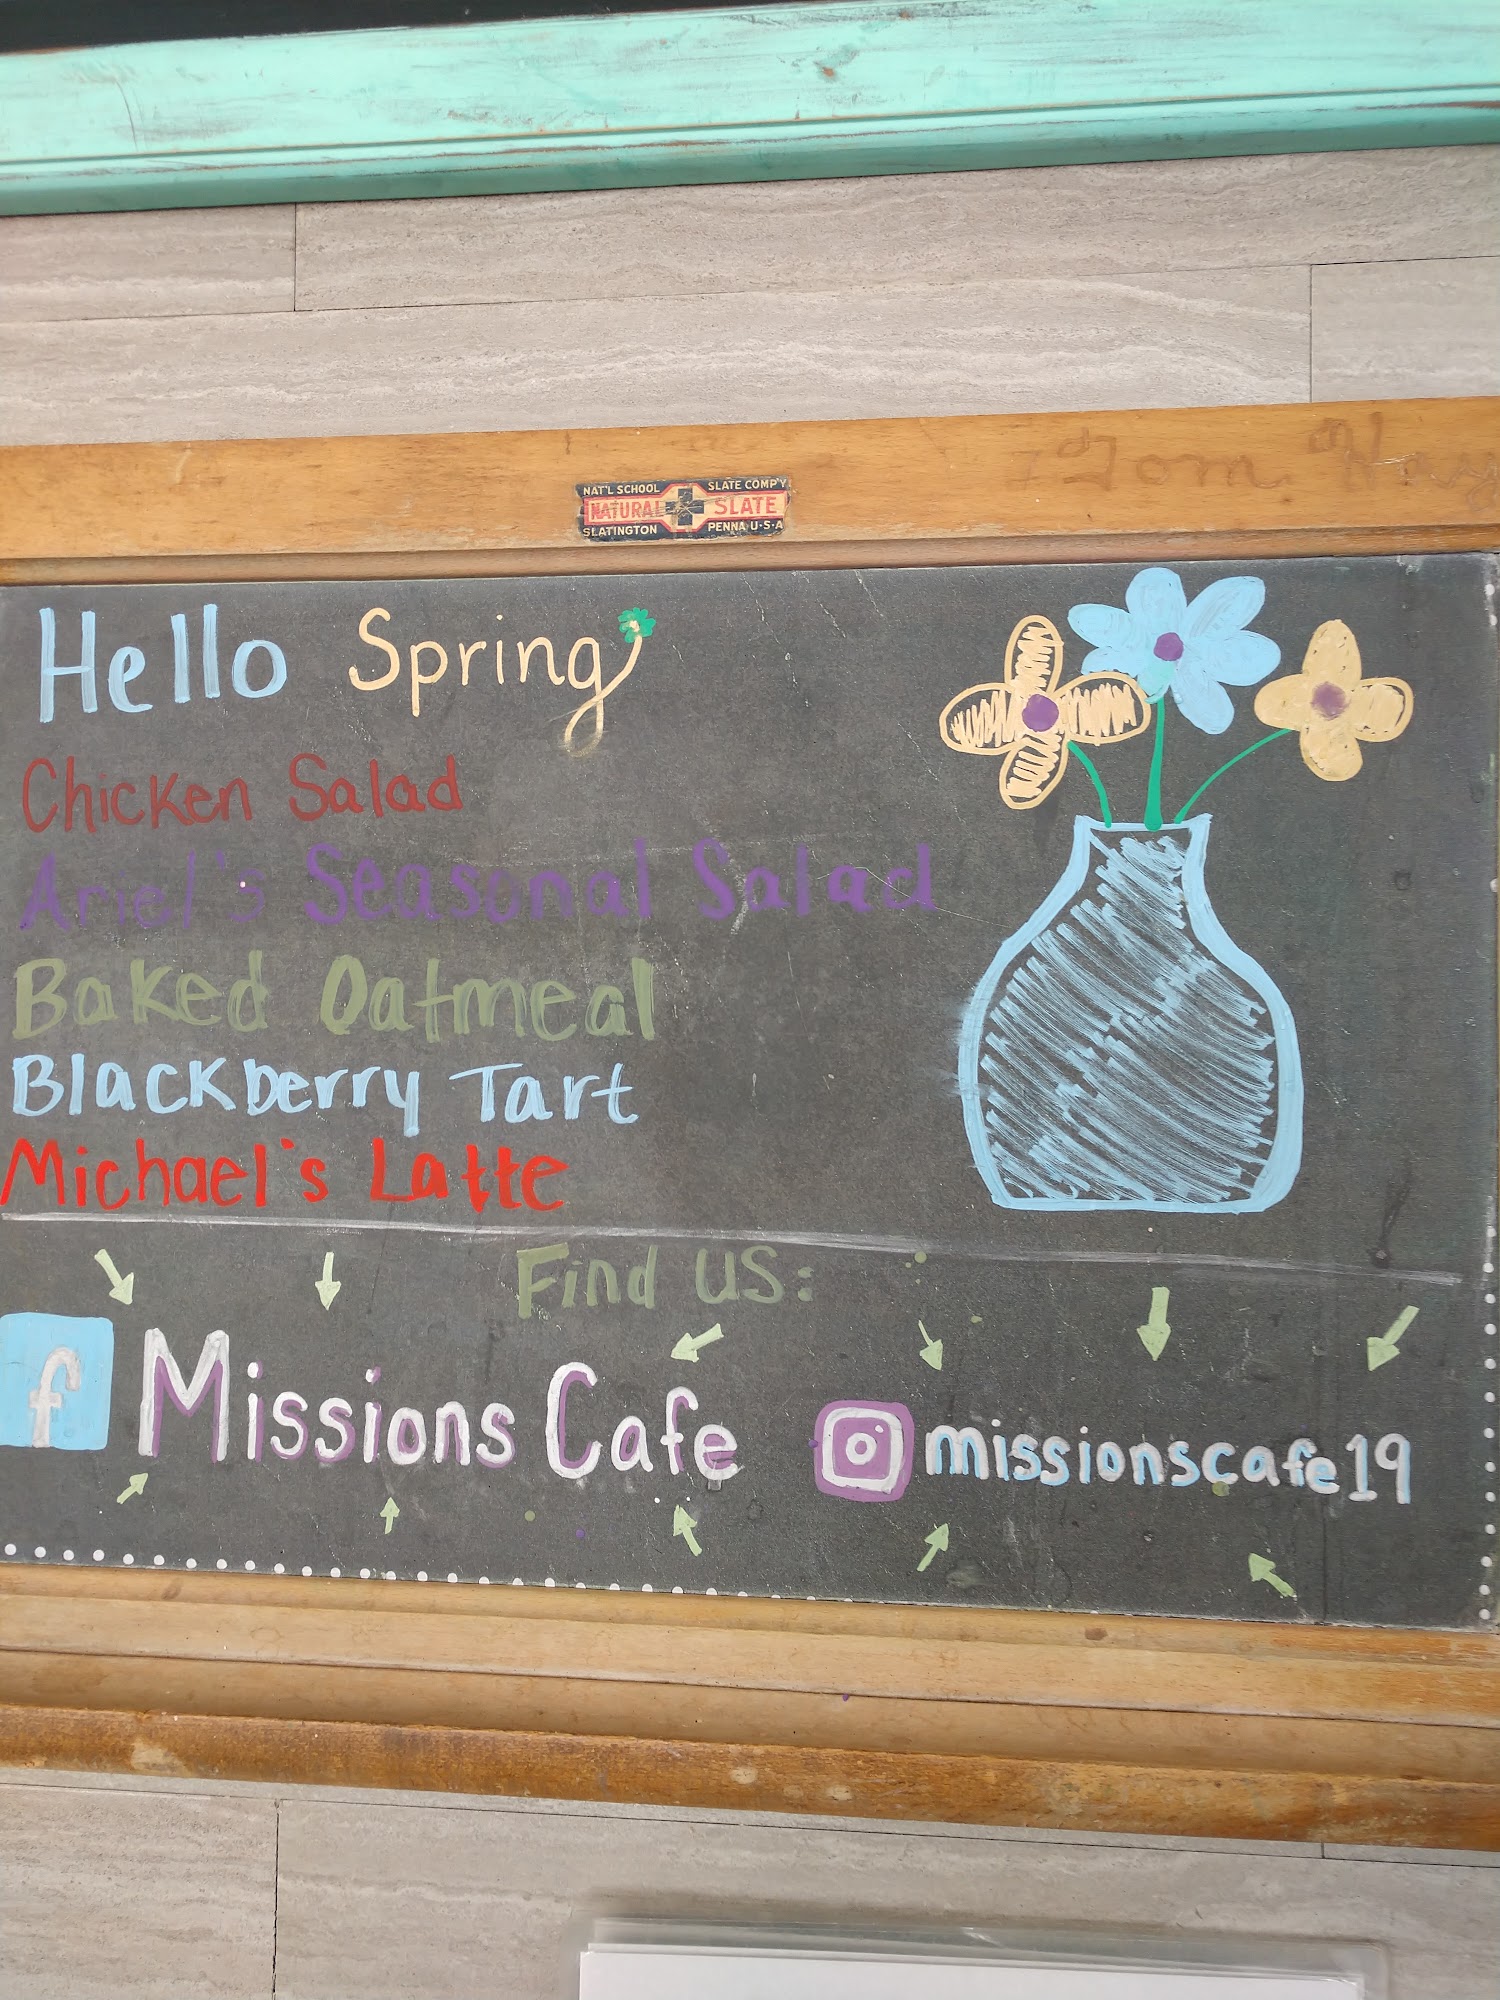 NAT'L SCHOOL SLATE COMP'Y
NATURAL SLATE
SLATINGTON PENNA U·S·A
Tom
Hello Spring
Chicken Salad
Ariel's Seasonal Salad
Baked Oatmeal
Blackberry Tart
Michael's Latte
Find us:
f Missions Cafe
missionscafe19